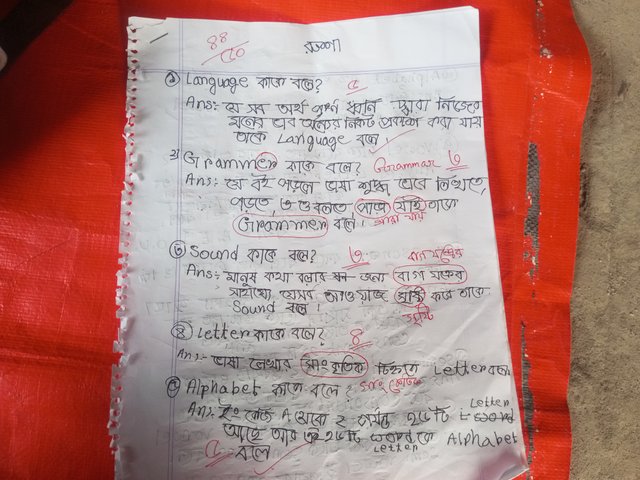 ৪৪/৫০
রওশা
① Language কাকে বলে? ৫
Ans:- যে সব অর্থ পূর্ণ ধ্বনি দ্বারা নিজের
মনের ভাব অন্যের নিকট প্রকাশ করা যায়
তাকে Language বলে।
২) Grammer কাকে বলে? Grammar ৩
Ans: যে বই পড়লে ভাষা শুদ্ধ ভাবে লিখতে,
পড়তে, ও বলতে পারে যাই তাকে
Grammer বলে। পারা যায়
③ Sound কাকে বলে? ৩ বাগ যন্ত্রের
Ans:- মানুষ কথা বলার জন্য বাগ
সাহায্যে যেসব আওয়াজ করে তাকে
Sound বলে। সৃষ্টি
④ Letter কাকে বলে? ৪
Ans:- ভাষা লেখার সাংকৃতিক চিহ্নকে Letter বলে
⑤ Alphabet কাকে বলে? সাংকেতিক
Ans: ইংরেজি A থেকে z পর্যন্ত ২৬টি Letter
আছে আর এই ২৬টি word কে Alphabet
Letter
৫ বলে